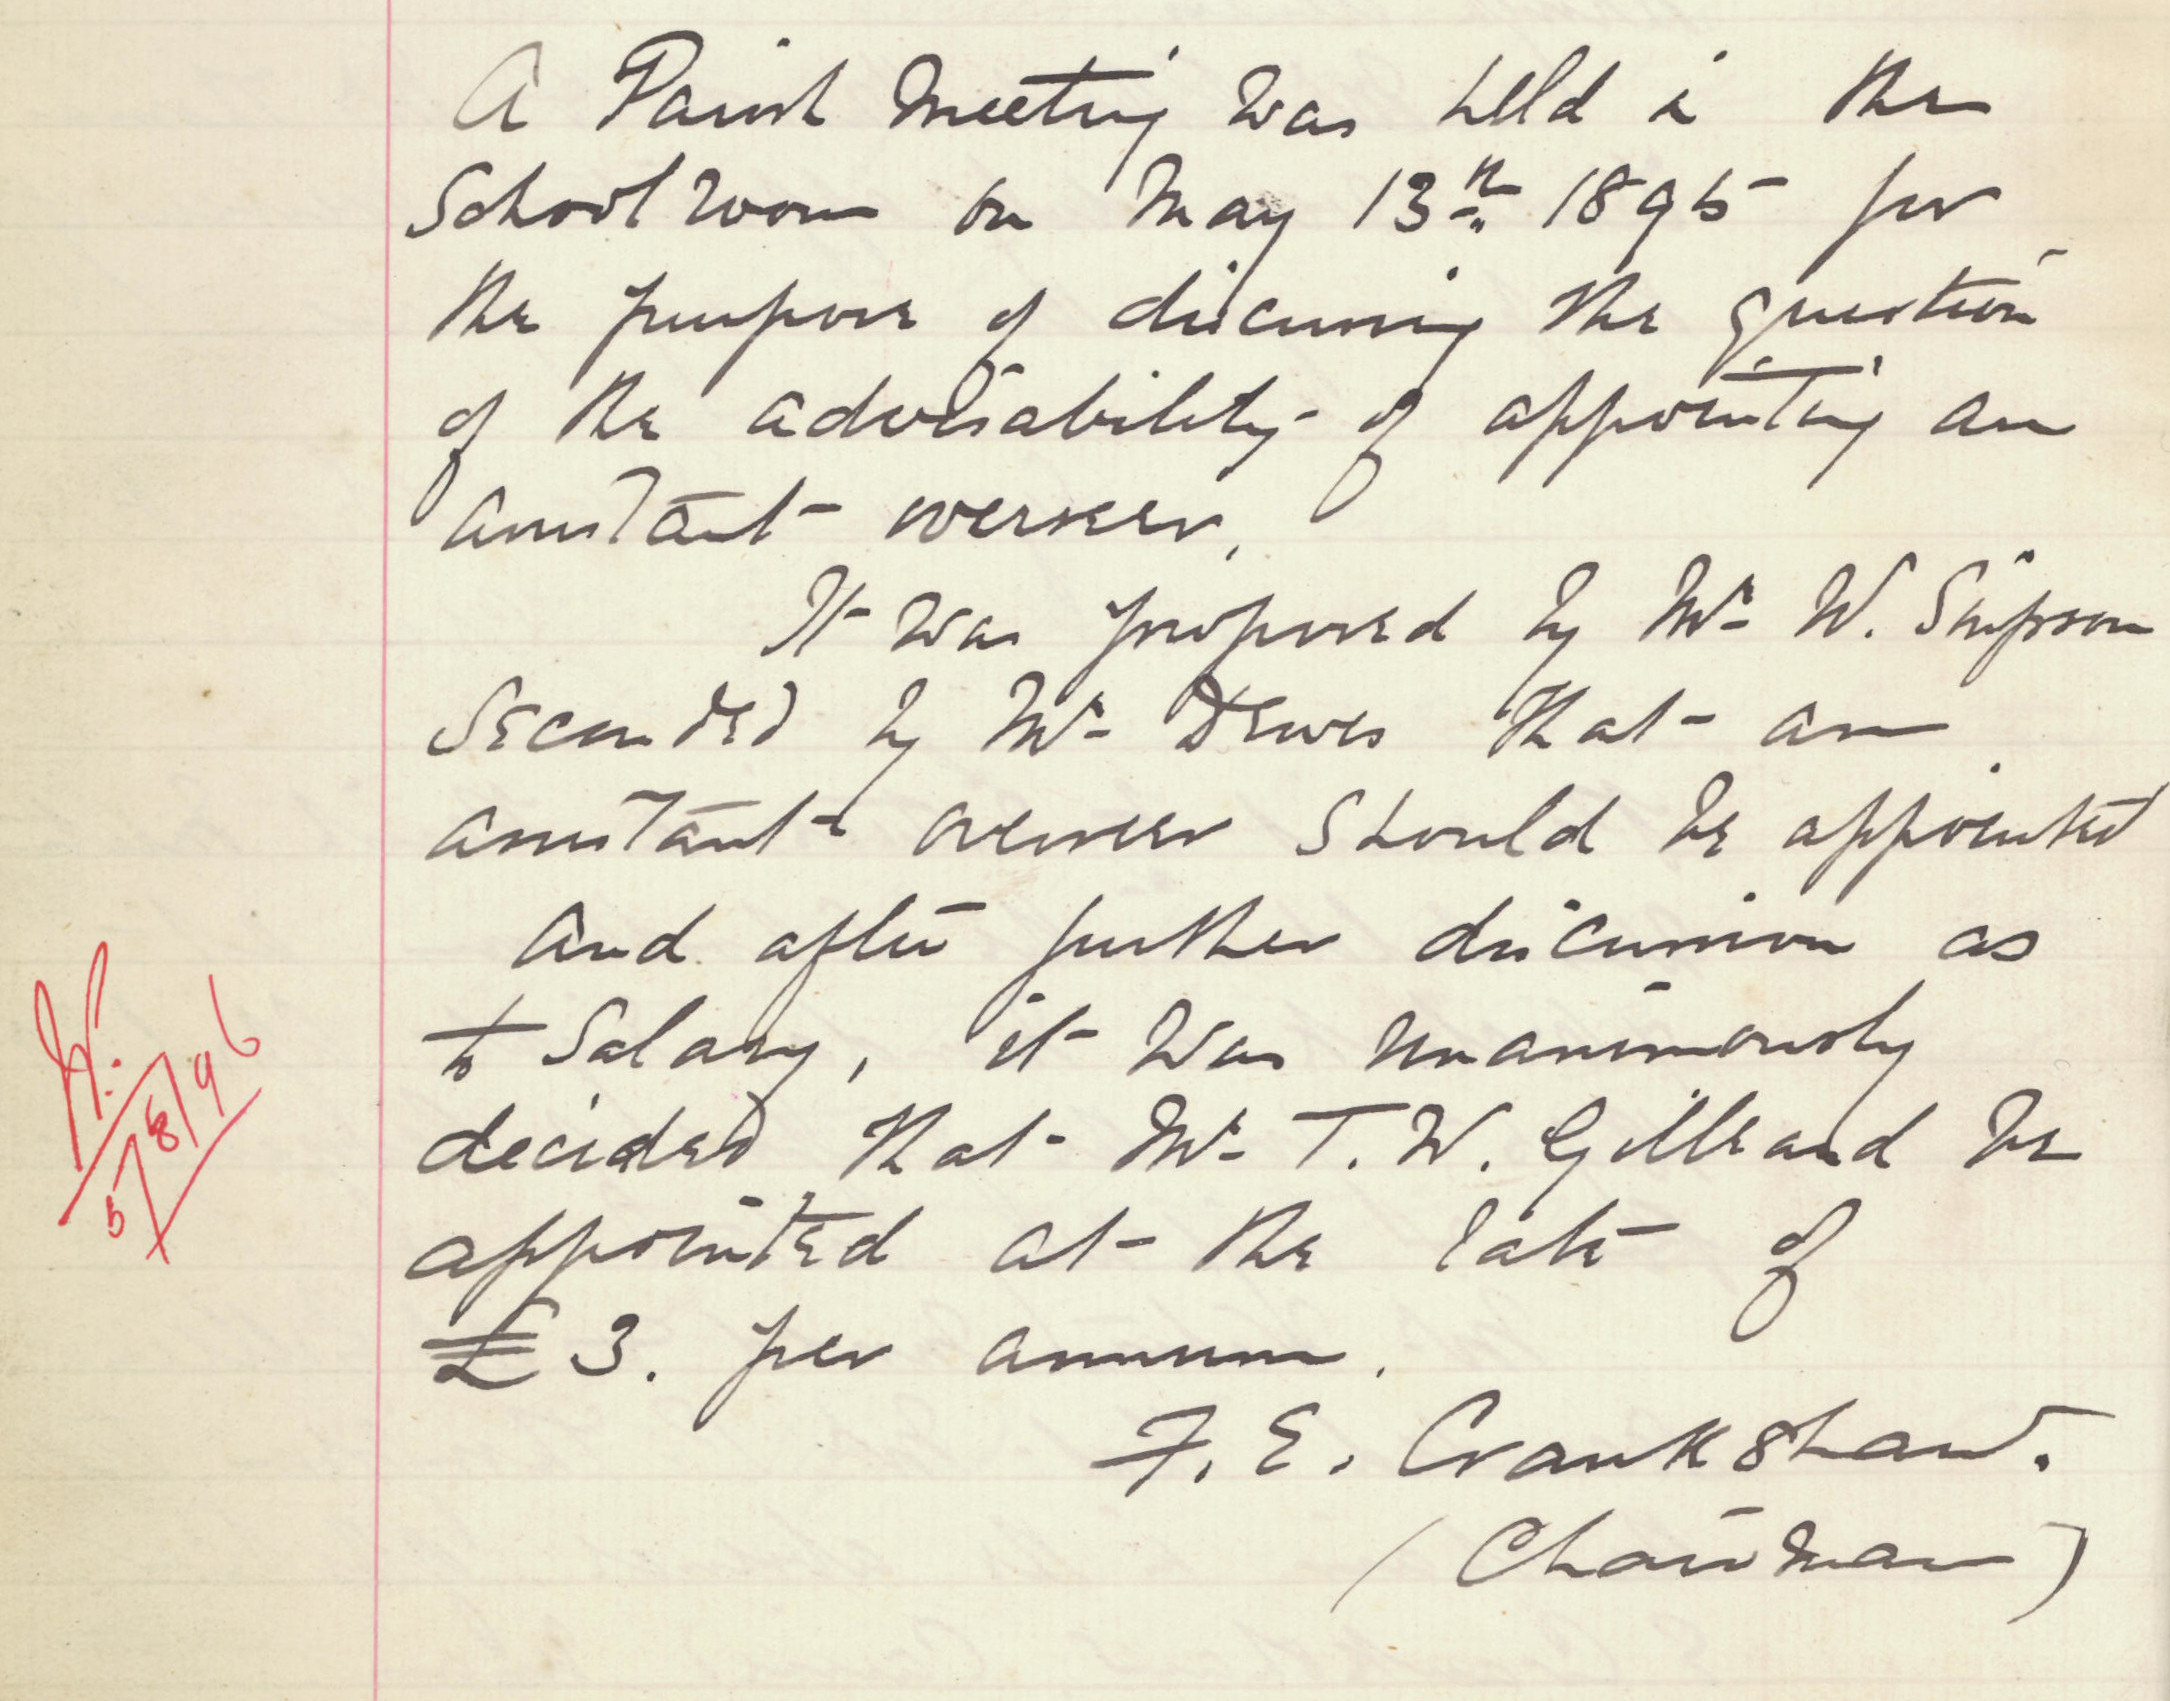 A Parish Meeting was held in the
Schoolroom on May 13th 1895 for
the purpose of discussing the question
of the advisability of appointing an
assistant overseer.
It was proposed by Mr W. Simpson
Seconded by Mr Dewes that an
assistant overseer should be appointed
and after further discussion as
to Salary, it was unanimously
decided that Mr T. W. Gilleard be
appointed at the rate of
£3. per annum.
F. E. Crankshaw.
(Chairman)
5/8/96